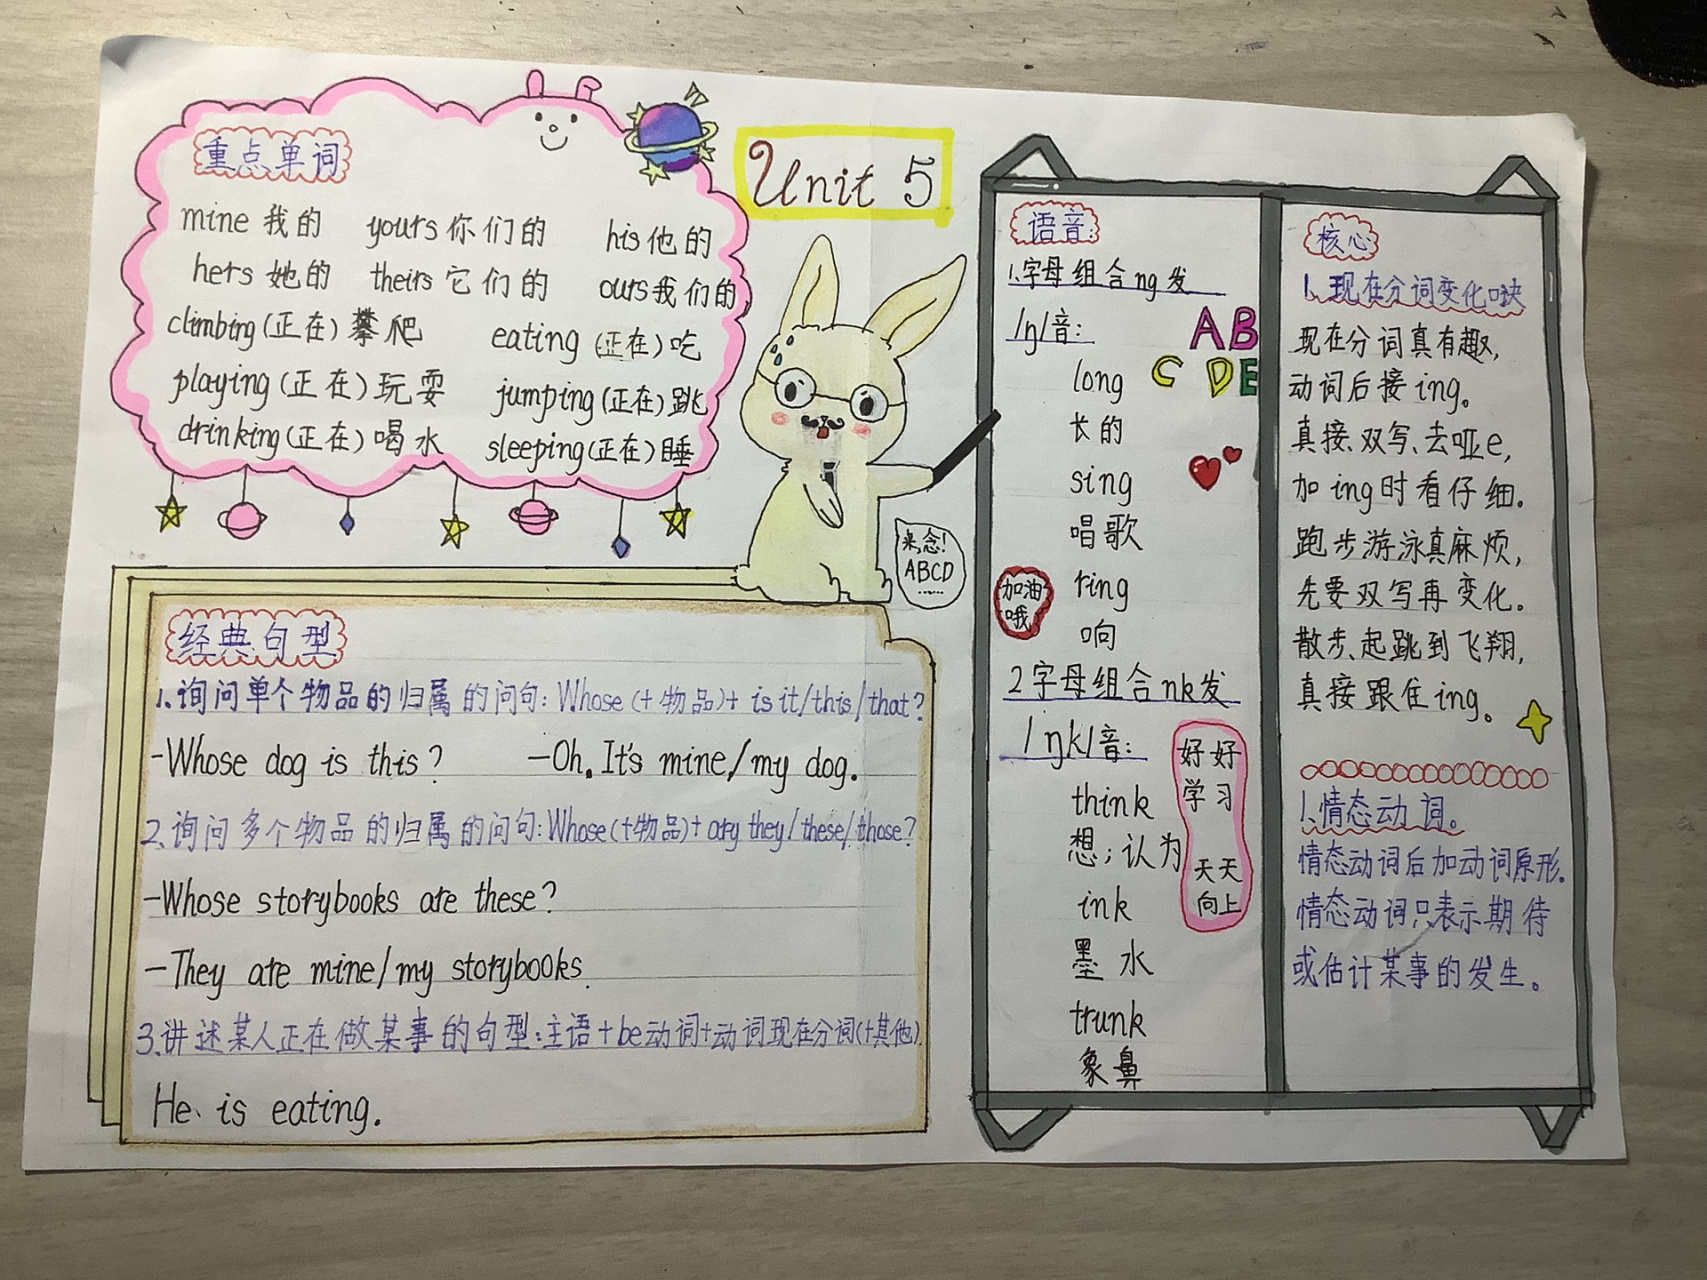 Unit 5
重点单词
mine 我的 yours 你们的 his 他的
hers 她的 theirs 它们的 ours 我们的
climbing (正在) 攀爬 eating (正在) 吃
playing (正在) 玩耍 jumping (正在) 跳
drinking (正在) 喝水 sleeping (正在) 睡
来,念!
ABCD
......
经典句型
1.询问单个物品的归属的问句: Whose (+物品)+ is it/this/that?
-Whose dog is this? -Oh. It's mine/my dog.
2.询问多个物品的归属的问句: Whose (+物品)+ they/these/those?
-Whose storybooks are these?
-They are mine/my storybooks.
3.讲述某人正在做某事的句型:主语+be动词+动词现在分词(+其他)
He is eating.
语音:
1.字母组合ng发
/ŋ/音:
AB
C DE
long
长的
sing
唱歌
加油
哦
ring
响
2字母组合nk发
/ŋk/音:
好好
学习
天天
向上
think
想;认为
ink
墨水
trunk
象鼻
核心
1.现在分词变化诀
现在分词真有趣,
动词后接ing。
真接、双写、去哑e,
加ing时看仔细.
跑步游泳真麻烦,
先要双写再变化。
散步、起跳到飞翔,
真接跟住ing。
1.情态动词。
情态动词后加动词原形.
情态动词只表示期待
或估计某事的发生。